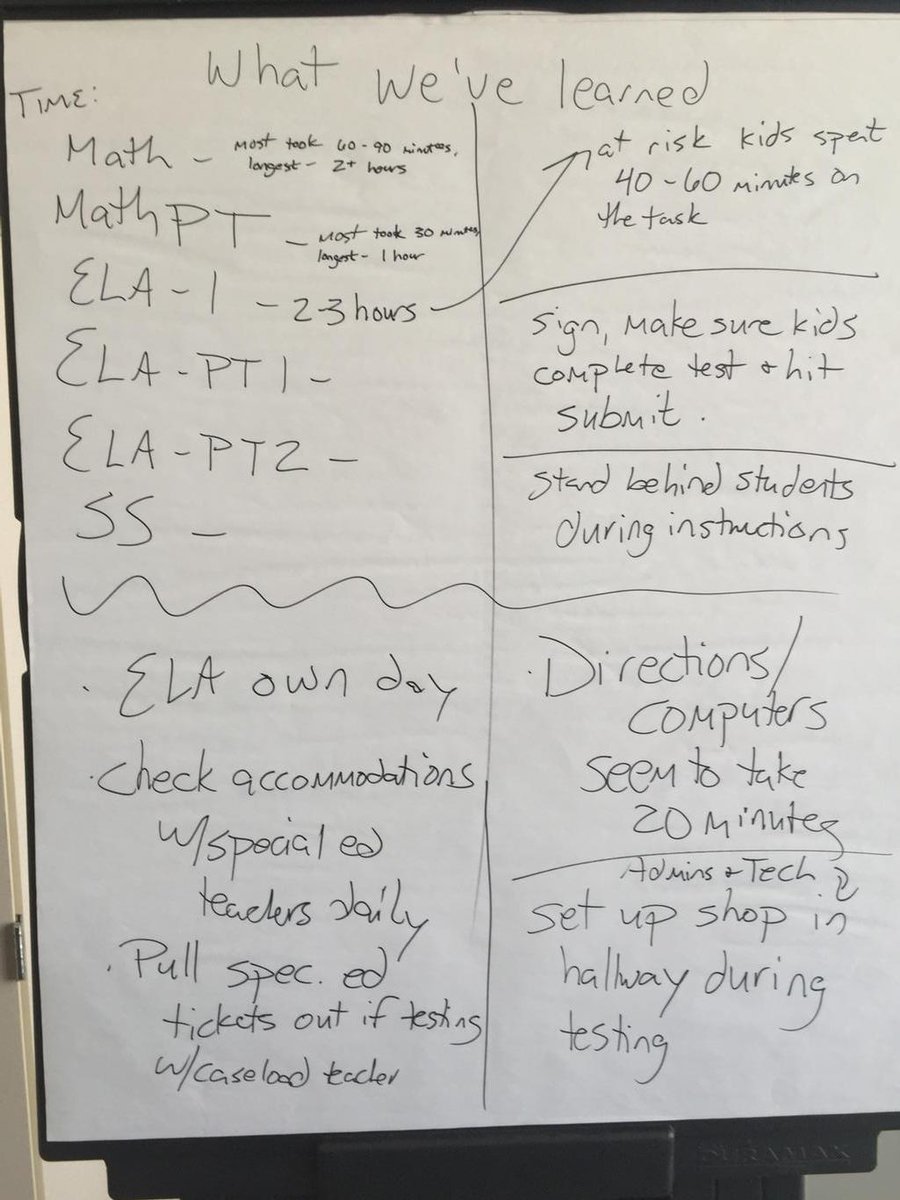 What We've learned
TIME:
Math - Most took 60-90 minutes,
longest - 2+ hours
Math PT - Most took 30 minutes
longest - 1 hour
ELA - 1 - 2-3 hours
ELA - PT1 -
ELA - PT2 -
SS -
at risk kids spent
40-60 minutes on
the task
Sign, Make sure kids
complete test + hit
submit.
Stand behind students
during instructions
· ELA own day
· Check accommodations
w/special ed
teachers daily
· Pull spec. ed
tickets out if testing
w/caseload teacher
· Directions/
computers
seem to take
20 minutes
Admins + Tech
set up shop in
hallway during
testing
DURAMAX